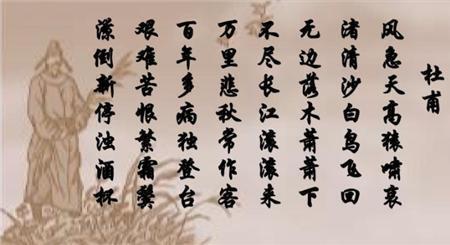 杜甫
风急天高猿啸哀
渚清沙白鸟飞回
无边落木萧萧下
不尽长江滚滚来
万里悲秋常作客
百年多病独登台
艰难苦恨繁霜鬓
潦倒新停浊酒杯